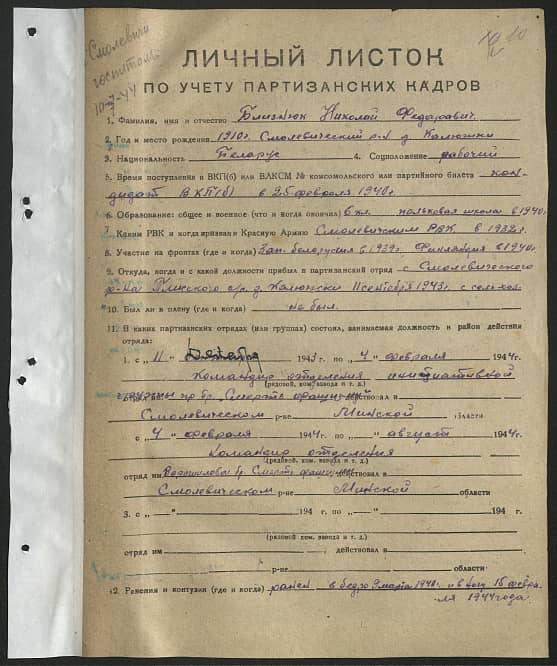 Смолевичи
госпиталь
10-7-44
10
ЛИЧНЫЙ ЛИСТОК
ПО УЧЕТУ ПАРТИЗАНСКИХ КАДРОВ
1. Фамилия, имя и отчество Близнюк Николай Федаравич.
2. Год и место рождения 1910г. Смолевический р-н д. Калюжки
3. Национальность Беларус 4. Соцположение рабочий
5. Время поступления в ВКП(б) или ВЛКСМ № комсомольского или партийного билета кан-
дидат ВКП(б) в 25 февраля 1940г
6. Образование: общее и военное (что и когда окончил) 6 кл. полковая школа в 1940г.
7. Каким РВК и когда призван в Красную Армию Смолевичским РВК в 1932г.
8. Участие на фронтах (где и когда) Зап. белоруссия в 1939г. Финляндия в 1940г
9. Откуда, когда и с какой должности прибыл в партизанский отряд с Смолевического
р-на Плиского с/с д. Калюжки 11 сентября 1943г. с
10. Был ли в плену (где и когда) не был.
11. В каких партизанских отрядах (или группах) состоял, занимаемая должность и район действия
отряда:
1. с „ 11 “ 1943 г. по „ 4 “ февраля 1944г.
Командир отделения инициативной
(рядовой, ком. взвода и т. д.)
группы пр бр. Смерть фашизму действовал в
Смолевическом р-не Минской области
с „ 4 “ февраля 1944 г. по „ “ август 1944г.
Командир отделения
(рядовой, ком. взвода и т. д.)
отряд им Ворошилова бр. Смерть фашизму действовал в
Смолевическом р-не Минской области
3. с „ — “ 194 г. по „ — “ 194 г.
(рядовой ком. взвода и т. д.)
отряд им , действовал в
р-не области
12. Ранения и контузии (где и когда) ранен в бедро 9 марта 1940г. и в ногу 15 февра-
ля 1944 года.